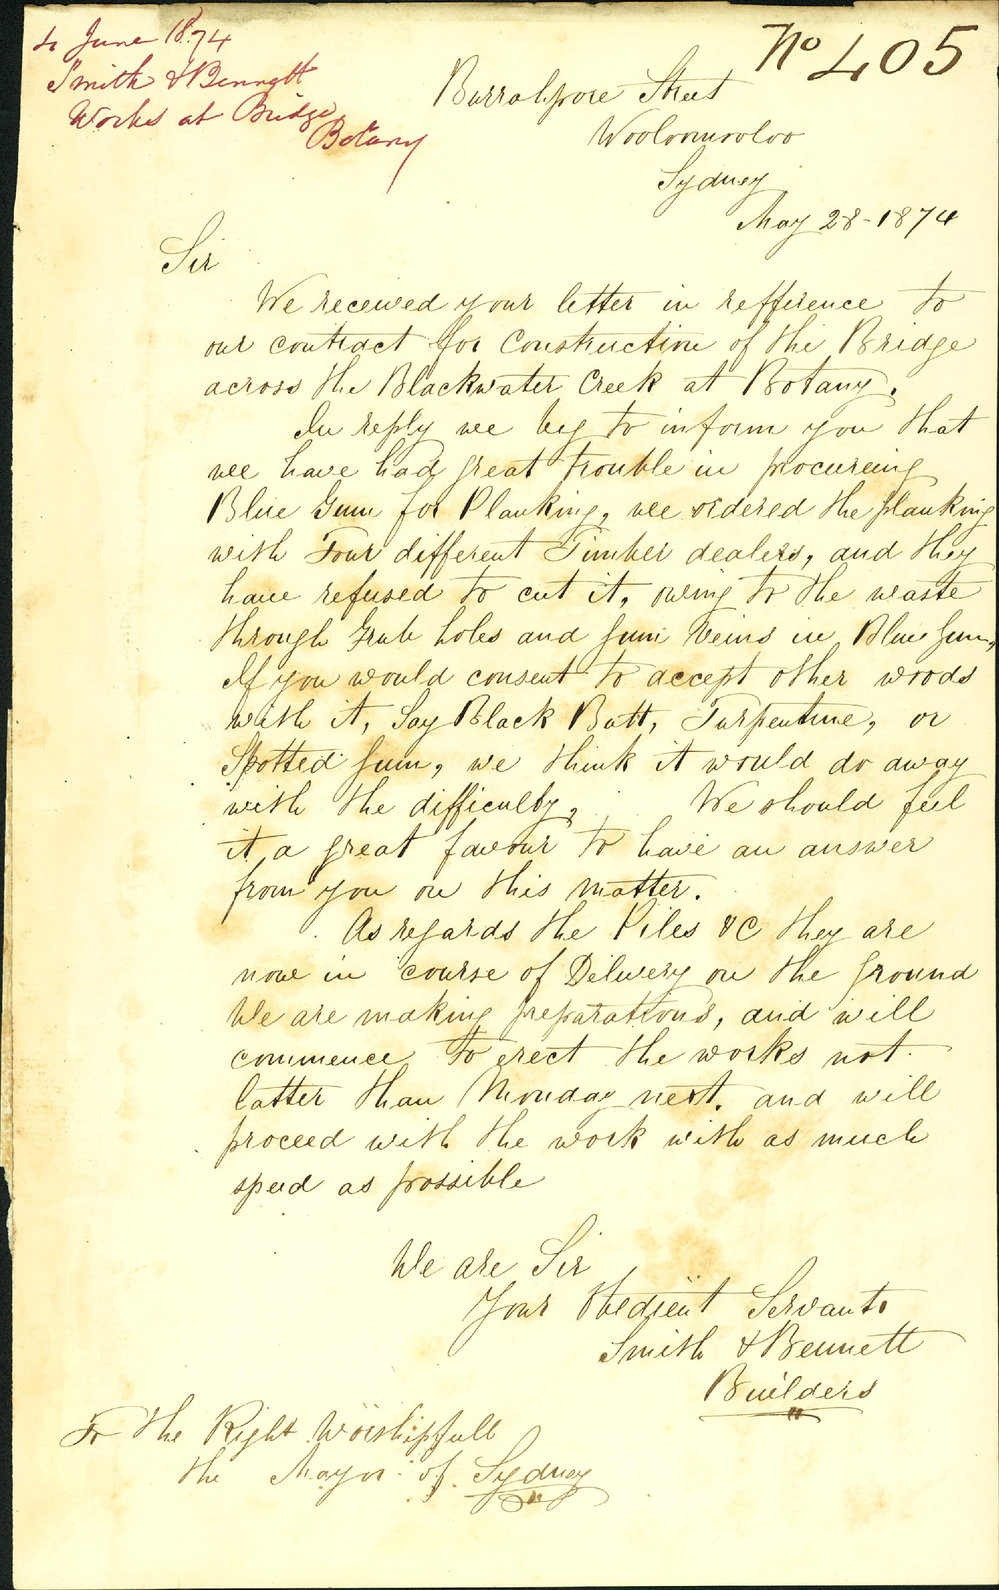 4 June 1874
Smith & Bennett
Works at Bridge
Botany
No 405
Burrahpore Street
Wooloomooloo
Sydney
May 28-1874
Sir
We received your letter in refference to
our contract for Construction of the Bridge
across the Blackwater Creek at Botany.
In reply we beg to inform you that
wee have had great trouble in procureing
Blue Gum for Planking, wee ordered the planking
with Four different Timber dealers, and they
have refused to cut it, owing to the waste
through Grub holes and gum Veins in Blue Gum,
If you would consent to accept other woods
with it, Say Black Butt, Turpentine, or
Spotted Gum, we think it would do away
with the difficulty, We should feel
it a great favour to have an answer
from you on this matter.
As regards the Piles &C they are
now in course of Delivery on the ground
We are making preparations, and will
commence to erect the works not
latter than Monday next. and will
proceed with the work with as much
speed as possible
We are Sir
Your Obedient Servants
Smith & Bennett
Builders
To the Right Worshipfull
the Mayor of Sydney